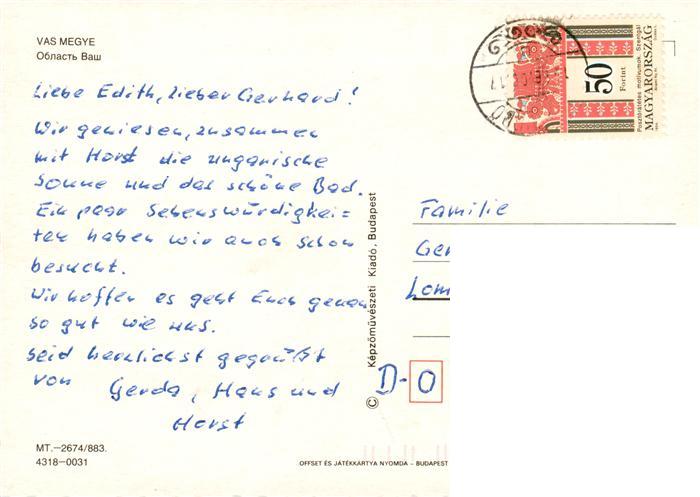 VAS MEGYE
Область Ваш
Liebe Edith, lieber Gerhard!
Wir geniesen, zusammen
mit Horst die ungarische
Sonne und das schöne Bad.
Ein paar Sehenswürdigkei=
ten haben wir auch schon
besucht.
Wir hoffen es geht Euch genau
so gut wie uns.
Seid herzlichst gegrüßt
von Gerda, Hans und
Horst
MT.—2674/883.
4318—0031
© Képzőművészeti Kiadó, Budapest
OFFSET ÉS JÁTÉKKÁRTYA NYOMDA – BUDAPEST
50
Forint
Posztórátétes motívumok. Szentgál
MAGYARORSZÁG
Familie
Ger
Lom
D-0